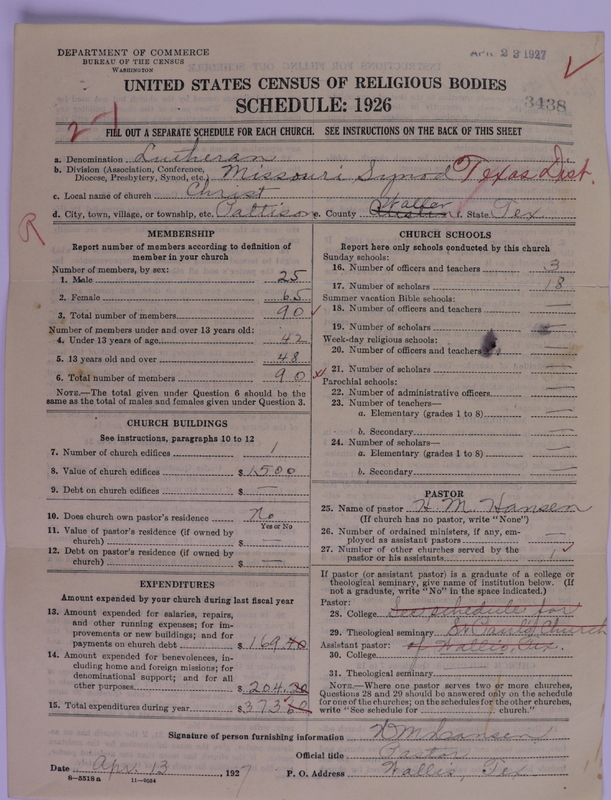 DEPARTMENT OF COMMERCE
BUREAU OF THE CENSUS
WASHINGTON
APR 23 1927
UNITED STATES CENSUS OF RELIGIOUS BODIES
SCHEDULE: 1926
3438
FILL OUT A SEPARATE SCHEDULE FOR EACH CHURCH. SEE INSTRUCTIONS ON THE BACK OF THIS SHEET
a. Denomination Lutheran
b. Division (Association, Conference, Diocese, Presbytery, Synod, etc.) Missouri Synod Texas Dist.
c. Local name of church Christ
d. City, town, village, or township, etc. Pattison e. County Austin Waller f. State Tex
R
MEMBERSHIP
Report number of members according to definition of member in your church
Number of members, by sex:
1. Male 25
2. Female 65
3. Total number of members 90
Number of members under and over 13 years old:
4. Under 13 years of age 42
5. 13 years old and over 48
6. Total number of members 90
NOTE.—The total given under Question 6 should be the same as the total of males and females given under Question 3.
CHURCH BUILDINGS
See instructions, paragraphs 10 to 12
7. Number of church edifices 1
8. Value of church edifices $1500
9. Debt on church edifices $ —
10. Does church own pastor's residence No
Yes or No
11. Value of pastor's residence (if owned by church) $ —
12. Debt on pastor's residence (if owned by church) $ —
EXPENDITURES
Amount expended by your church during last fiscal year
13. Amount expended for salaries, repairs, and other running expenses; for improvements or new buildings; and for payments on church debt $ 169.40
14. Amount expended for benevolences, including home and foreign missions; for denominational support; and for all other purposes $ 204.20
15. Total expenditures during year $ 373.60
CHURCH SCHOOLS
Report here only schools conducted by this church
Sunday schools:
16. Number of officers and teachers 3
17. Number of scholars 18
Summer vacation Bible schools:
18. Number of officers and teachers —
19. Number of scholars —
Week-day religious schools:
20. Number of officers and teachers —
21. Number of scholars —
Parochial schools:
22. Number of administrative officers —
23. Number of teachers—
a. Elementary (grades 1 to 8) —
b. Secondary —
24. Number of scholars—
a. Elementary (grades 1 to 8) —
b. Secondary —
PASTOR
25. Name of pastor H. M. Hansen
(If church has no pastor, write "None")
26. Number of ordained ministers, if any, employed as assistant pastors —
27. Number of other churches served by the pastor or his assistants 1
If pastor (or assistant pastor) is a graduate of a college or theological seminary, give name of institution below. (If not a graduate, write "No" in the space indicated.)
Pastor:
28. College See schedule for
29. Theological seminary St Pauls Church
Assistant pastor: of Wallis, Tex.
30. College
31. Theological seminary
NOTE.—Where one pastor serves two or more churches, Questions 28 and 29 should be answered only on the schedule for one of the churches; on the schedules for the other churches, write "See schedule for church."
Signature of person furnishing information H M Hansen
Official title Pastor
Date Apr. 13, 1927 P. O. Address Wallis, Tex
8—5518 a 11—9034